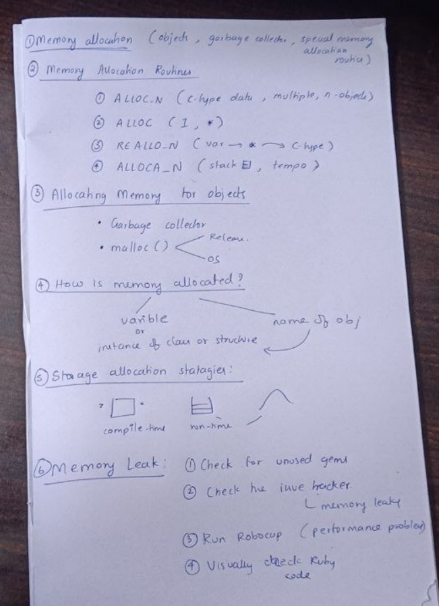 ① Memory allocation (objects, garbage collector, special memory
allocation
routine)
② Memory Allocation Routines
① ALLOC_N (c-type data, multiple, n-objects)
② ALLOC (1, *)
③ REALLO_N (var → * → C-type)
④ ALLOCA_N (stack, tempo)
③ Allocating Memory for objects
• Garbage collector
• malloc()
Release.
OS
④ How is memory allocated?
varible
or
instance of class or structure
name of obj
⑤ Storage allocation statagies:
compile-time
run-time
⑥ Memory Leak:
① Check for unused gems
② Check the issue tracker
memory leaky
③ Run Robocup (performance problem)
④ Visually check Ruby
code